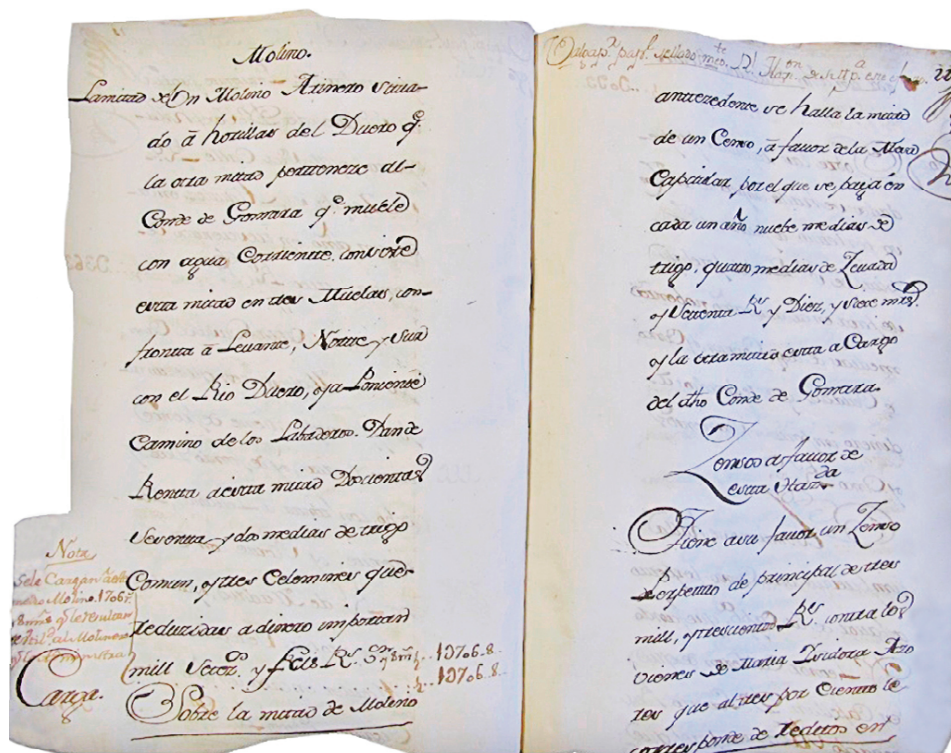 Molino.
La mitad de Un Molino Arinero situa-
do â horillas del Duero q.e
la otra mitad perttenece al
Conde de Gomara q.e muele
con agua Corriente. consiste
esta mitad en tres Muelas, con-
fronta â Levante, Nortte y Sur
con el Rio Duero, y a Poniente
Camino de los Labaderos. Dan de
Rentta a esta mitad Doscientas
Sesenta y dos medias de trigo
Comun, y tres Celemines que
reduzidas a dinero importan
mill Setez.s y seis R.s y 8 mrs .. 10706.8..
.. 10706.8..
Nota
Se le Cargan
Molino. 1706
al Molinero
Carga.
Sobre la mitad de Molino
antecedente se halla la mitad
de un Censo, â favor de la Mesa
Capitular, por el que se paga en
cada un año nuebe medias de
trigo, quatro medias de Zevada
y Setenta R.s y Diez, y siete mrs.
y la otra mitad esta a Cargo
del dho Conde de Gomara.
Zensos a favor de
esta Haz.da
Tiene a su favor un Zenso
Perpetuo de principal de tres
mill, y trescientos R.s contra los
vienes de Maria Ysidora
que al tres por Ciento le
corresponde de Reditos en